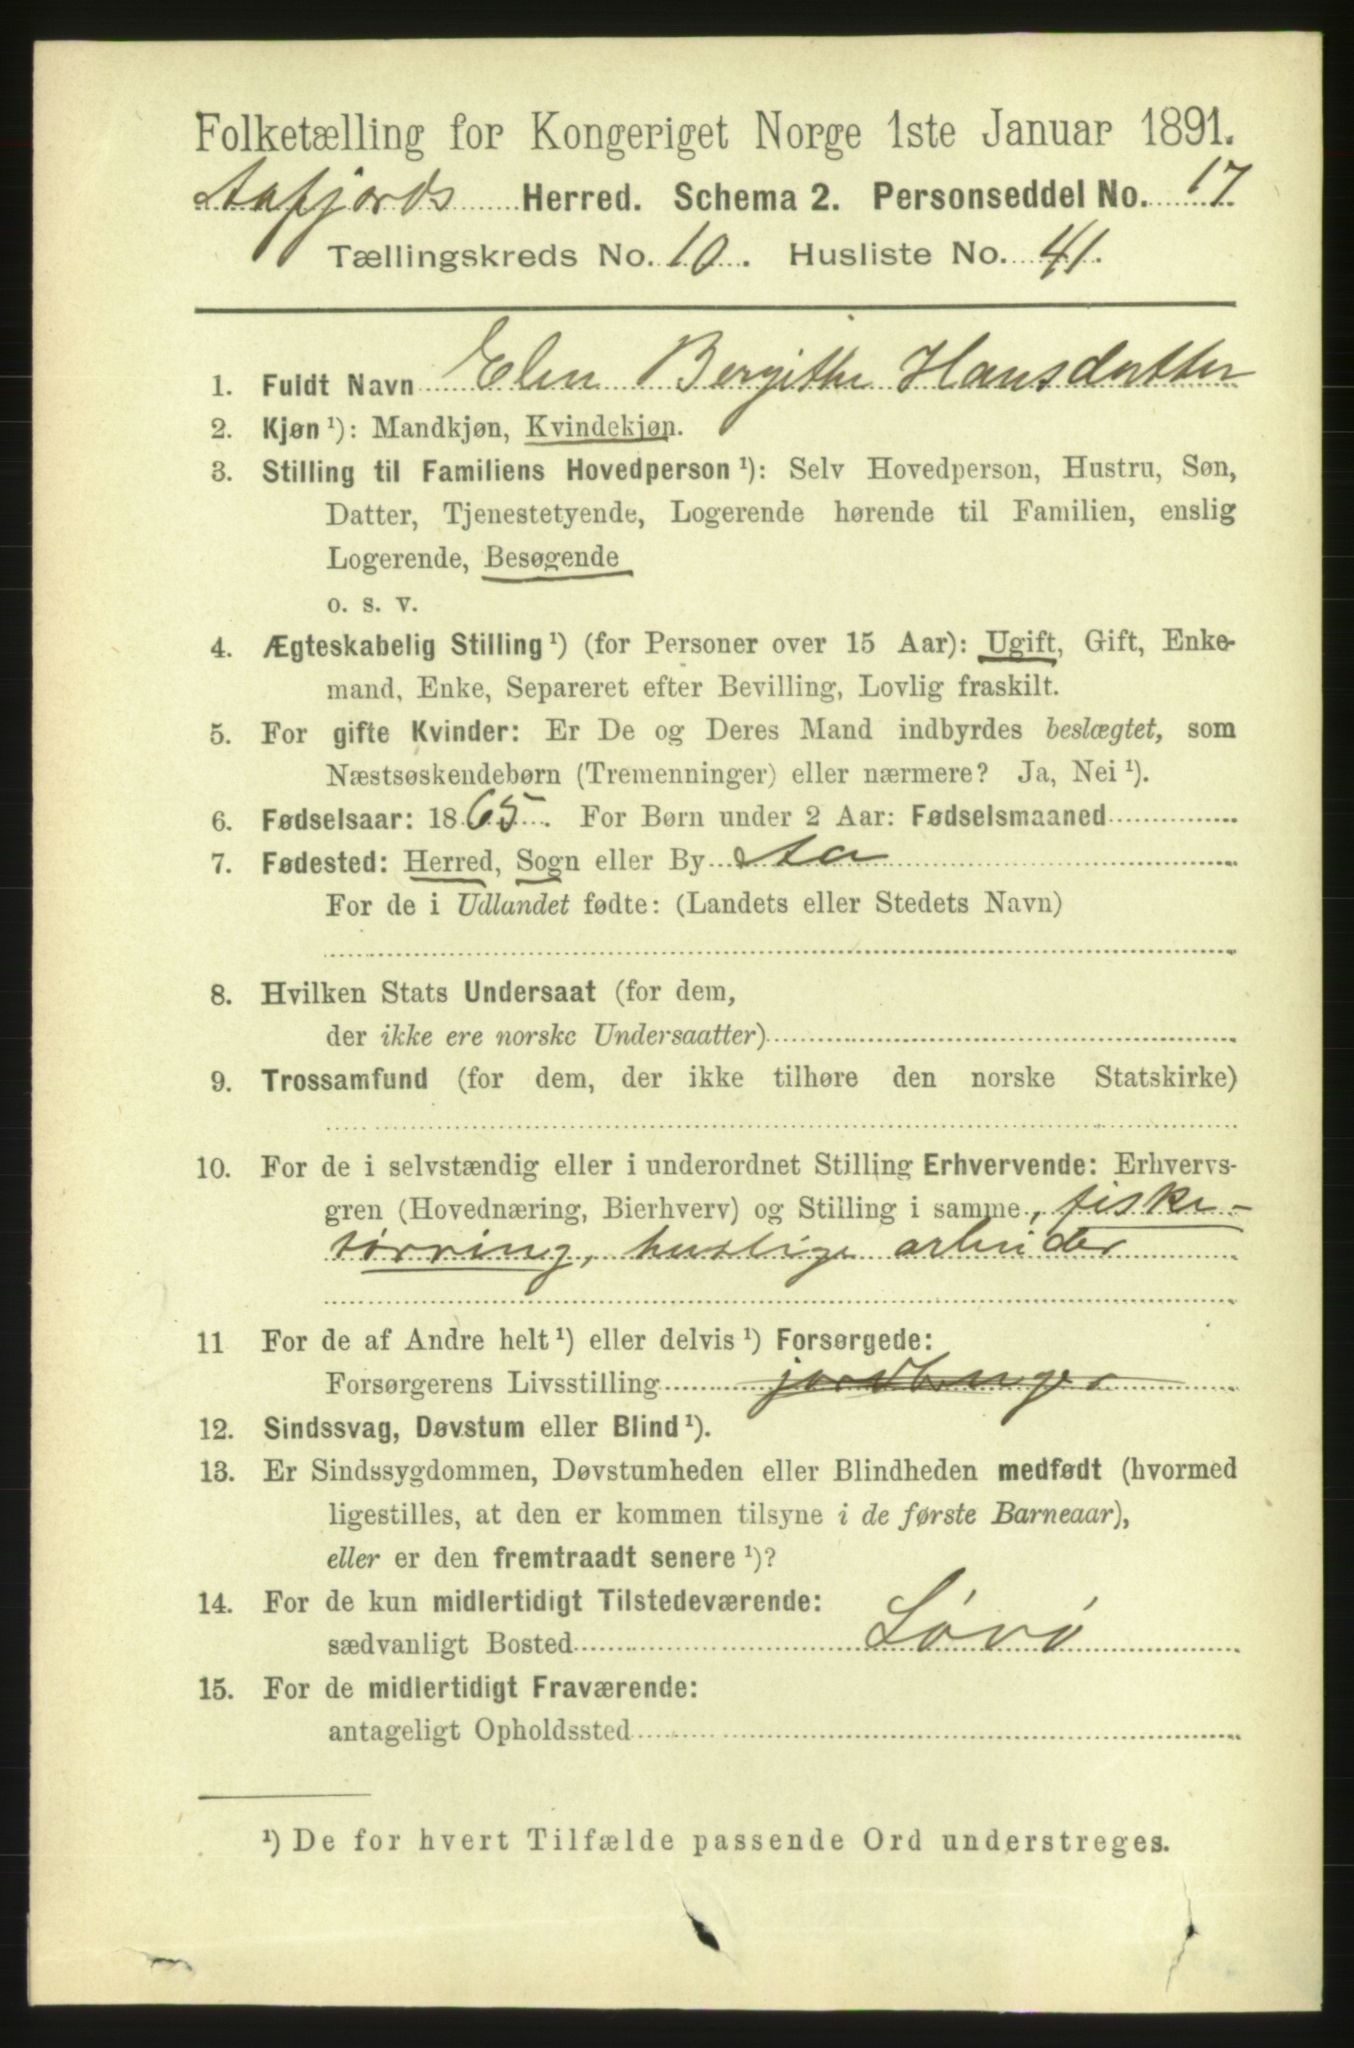 Folketælling for Kongeriget Norge 1ste Januar 1891.
Aafjords Herred. Schema 2. Personseddel No. 17.
Tællingskreds No. 10. Husliste No. 41.
1. Fuldt Navn Elen Bergithe Hansdatter
2. Kjøn ¹): Mandkjøn, Kvindekjøn.
3. Stilling til Familiens Hovedperson ¹): Selv Hovedperson, Hustru, Søn,
Datter, Tjenestetyende, Logerende hørende til Familien, enslig
Logerende, Besøgende
o. s. v.
4. Ægteskabelig Stilling ¹) (for Personer over 15 Aar): Ugift, Gift, Enke-
mand, Enke, Separeret efter Bevilling, Lovlig fraskilt.
5. For gifte Kvinder: Er De og Deres Mand indbyrdes beslægtet, som
Næstsøskendebørn (Tremenninger) eller nærmere? Ja, Nei ¹).
6. Fødselsaar: 1865. For Børn under 2 Aar: Fødselsmaaned
7. Fødested: Herred, Sogn eller By Aa
For de i Udlandet fødte: (Landets eller Stedets Navn)
8. Hvilken Stats Undersaat (for dem,
der ikke ere norske Undersaatter)
9. Trossamfund (for dem, der ikke tilhøre den norske Statskirke)
10. For de i selvstændig eller i underordnet Stilling Erhvervende: Erhvervs-
gren (Hovednæring, Bierhverv) og Stilling i samme, fiske-
tørring, huslige arbeider
11 For de af Andre helt ¹) eller delvis ¹) Forsørgede:
Forsørgerens Livsstilling jordbruger
12. Sindssvag, Døvstum eller Blind ¹).
13. Er Sindssygdommen, Døvstumheden eller Blindheden medfødt (hvormed
ligestilles, at den er kommen tilsyne i de første Barneaar),
eller er den fremtraadt senere ¹)?
14. For de kun midlertidigt Tilstedeværende:
sædvanligt Bosted Løvø
15. For de midlertidigt Fraværende:
antageligt Opholdssted
¹) De for hvert Tilfælde passende Ord understreges.